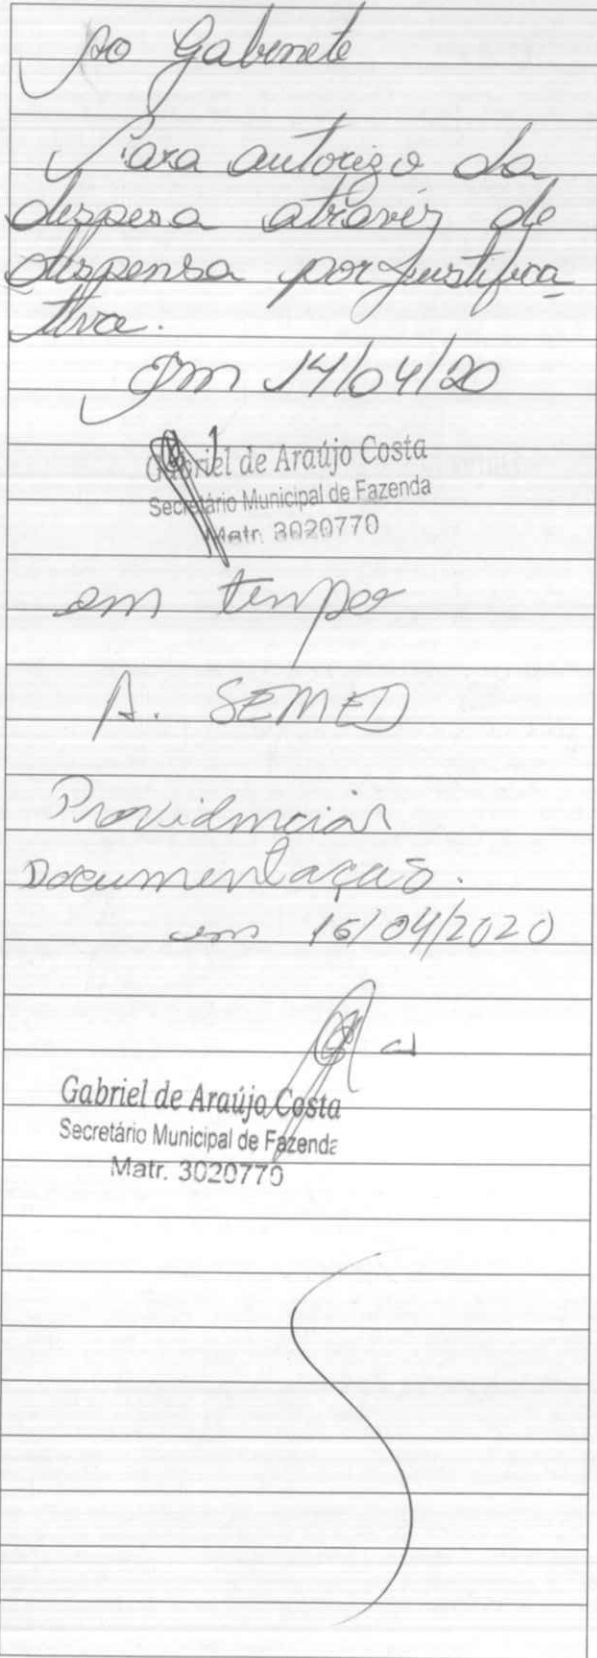 Ao Gabinete
Para autorizo da
despesa através de
dispensa por justifica
tiva.
Em 14/04/20
Gabriel de Araújo Costa
Secretário Municipal de Fazenda
Matr. 3020770
em tempo
A. SEMED
Providenciar
Documentação.
em 16/04/2020
Gabriel de Araújo Costa
Secretário Municipal de Fazenda
Matr. 3020770